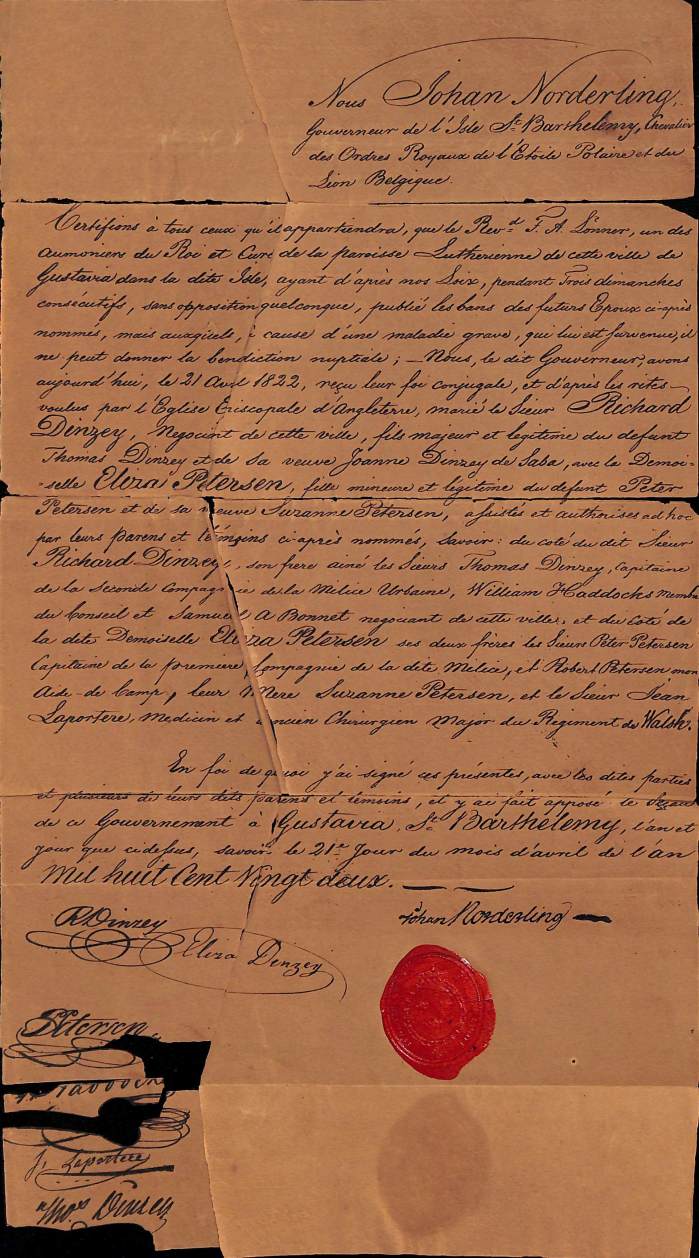 Nous Johan Norderling,
Gouverneur de l'Isle St. Barthelemy, Chevalier
des Ordres Royaux de l'Etoile Polaire et du
Lion Belgique.
Certifions à tous ceux qu'il appartiendra, que le Revd. F. A. Lönner, un des
aumoniers du Roi et Curé de la paroisse Lutherienne de cette ville de
Gustavia dans la dite Isle, ayant d'après nos Loix, pendant Trois dimanches
consecutifs, sans opposition quelconque, publié les bans des futurs Epoux ci-après
nommés, mais auxquels, à cause d'une maladie grave, qui lui est survenue, il
ne peut donner la benediction nuptiale; — Nous, le dit Gouverneur, avons
aujourd'hui, le 21 Avril 1822, reçu leur foi conjugale, et d'après les rites
voulus par l'Eglise Episcopale d'Angleterre, marié le Sieur Richard
Dinzey, Negociant de cette ville, fils majeur et legitime du defunt
Thomas Dinzey et de sa veuve Joanne Dinzey de Saba, avec la Demoi
-selle Eliza Petersen, fille mineure et legitime du defunt Peter
Petersen et de sa veuve Suzanne Petersen, assistés et authorises ad hoc
par leurs parens et témoins ci-après nommés, Savoir: du coté du dit Sieur
Richard Dinzey, son frere ainé les Sieurs Thomas Dinzey, Capitaine
de la Seconde Compagnie de la Milice Urbaine, William Haddocks membre
du Conseil et Samuel A Bonnet negociant de cette ville, et du Coté de
la dite Demoiselle Eliza Petersen ses deux frères les Sieurs Peter Petersen
Capitaine de la premiere Compagnie de la dite Milice, et Robert Petersen mon
Aide-de Camp, leur Mere Suzanne Petersen, et le Sieur Jean
Laportere, Medicin et ancien Chirurgien Major du Regiment de Walsh.
En foi de quoi j'ai signé ces présentes, avec les dites parties
et plusieurs de leurs dits parens et témoins, et y ai fait apposé le Sceau
de ce Gouvernement à Gustavia, St. Barthélemy, l'an et
jour que cidessus, savoir le 21e Jour du mois d'avril de l'an
Mil huit Cent Vingt deux.
RDinzey
Johan Norderling
Eliza Dinzey
Petersen
J. Laportere
Thos Dinzey